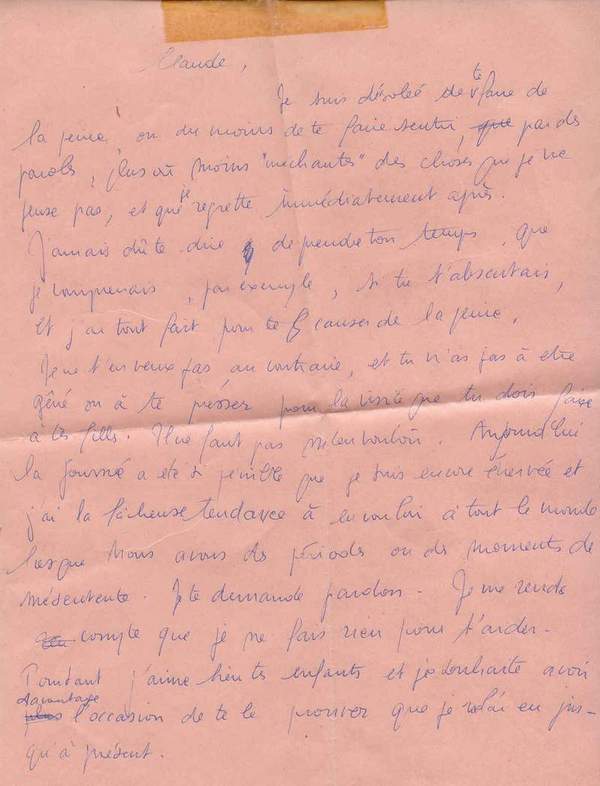 Claude,
Je suis désolée de te faire de
la peine, ou du moins de te faire sentir, que par des
paroles, plus ou moins "méchantes" des choses que je ne
pense pas, et que je regrette immédiatement après.
J'aurais dû te dire de prendre ton temps, que
je comprenais, par exemple, si tu t'absentais,
et j'ai tout fait pour te causer de la peine.
Je ne t'en veux pas, au contraire, et tu n'as pas à être
gêné ou à te presser pour la visite que tu dois faire
à tes filles. Il ne faut pas m'en vouloir. Aujourd'hui
la journée a été si pénible que je suis encore énervée et
j'ai la fâcheuse tendance à en vouloir à tout le monde
lorsque nous avons des périodes ou des moments de
mésentente. Je te demande pardon. Je me rends
compte que je ne fais rien pour t'aider.
Pourtant j'aime bien tes enfants et je souhaite avoir
davantage
plus l'occasion de te le prouver que je l'ai eu jus-
qu'à présent.